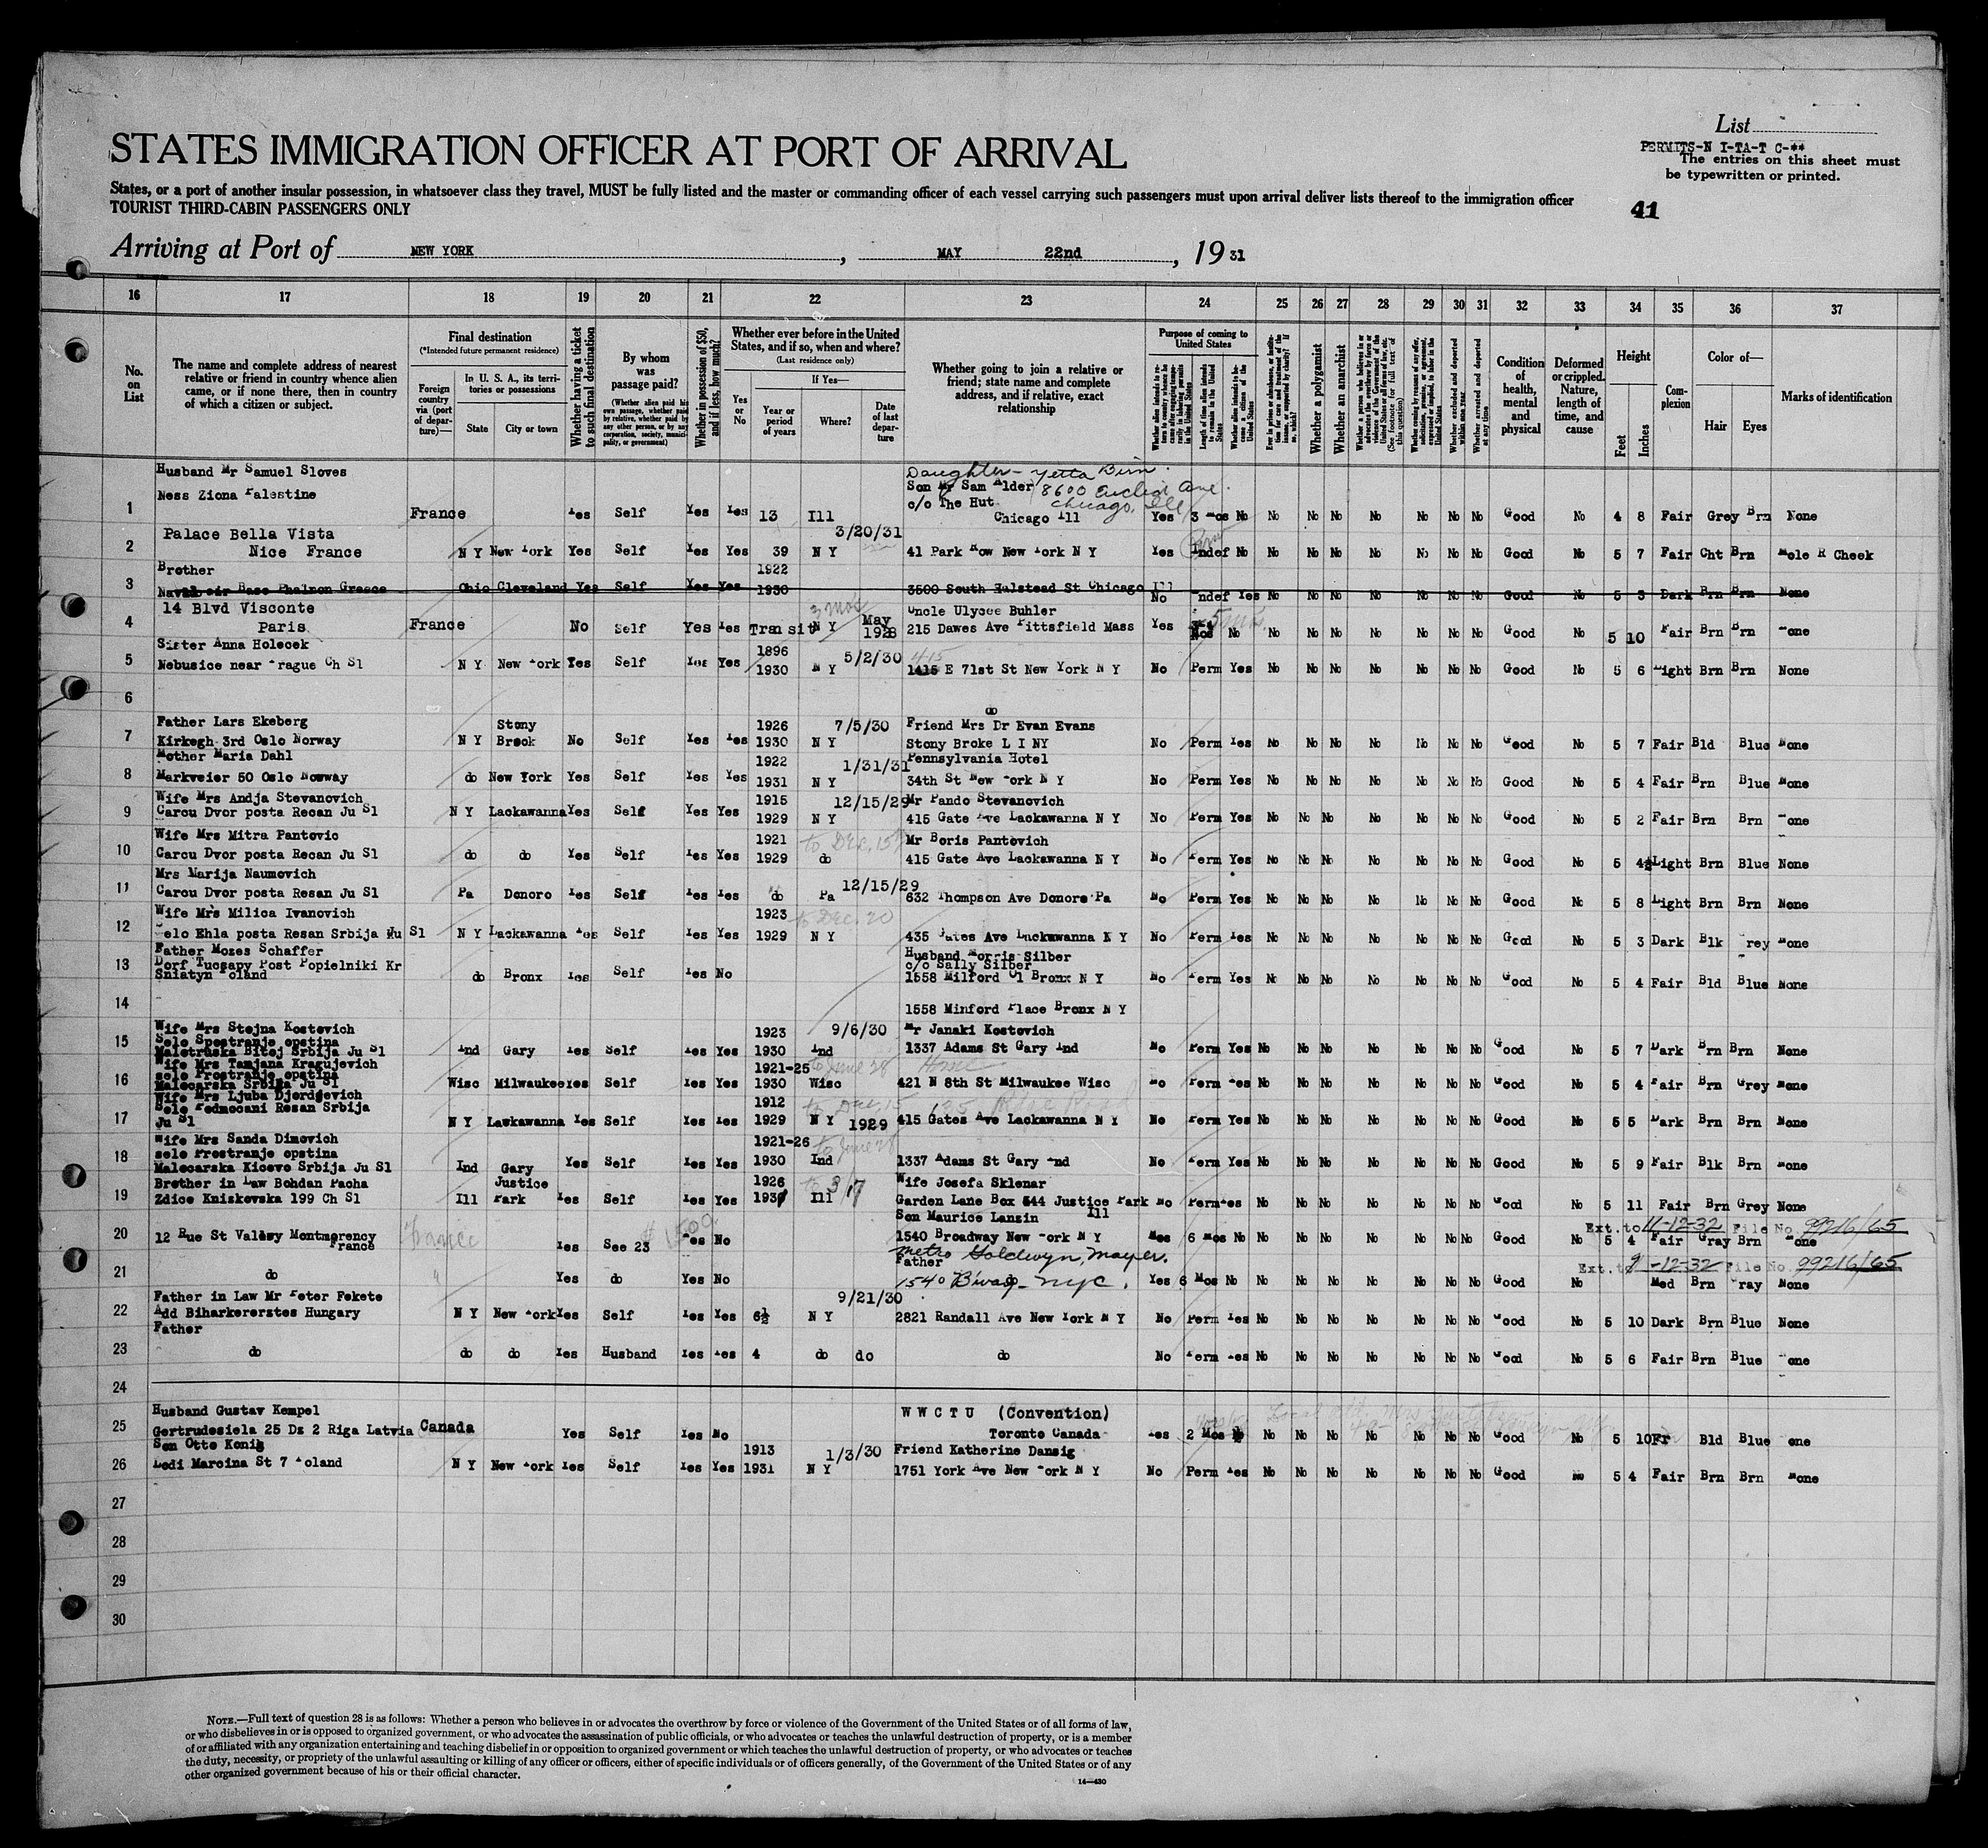 List
PERMITS-N I-TA-T C-**
The entries on this sheet must
be typewritten or printed.
STATES IMMIGRATION OFFICER AT PORT OF ARRIVAL
States, or a port of another insular possession, in whatsoever class they travel, MUST be fully listed and the master or commanding officer of each vessel carrying such passengers must upon arrival deliver lists thereof to the immigration officer
TOURIST THIRD-CABIN PASSENGERS ONLY
41
Arriving at Port of NEW YORK, MAY 22nd, 1931
16 17 18 19 20 21 22 23 24 25 26 27 28 29 30 31 32 33 34 35 36 37
No. on List
The name and complete address of nearest relative or friend in country whence alien came, or if none there, then in country of which a citizen or subject.
Final destination
(*Intended future permanent residence)
Foreign country via (port of departure)—
In U. S. A., its territories or possessions
State
City or town
Whether having a ticket to such final destination
By whom was passage paid?
(Whether alien paid his own passage, whether paid by relative, whether paid by any other person, or by any corporation, society, municipality, or government)
Whether in possession of $50, and if less, how much?
Whether ever before in the United States, and if so, when and where?
(Last residence only)
Yes or No
If Yes—
Year or period of years
Where?
Date of last departure
Whether going to join a relative or friend; state name and complete address, and if relative, exact relationship
Purpose of coming to United States
Length of time alien intends to remain in the United States
Whether alien intends to become a citizen of the United States
Whether a polygamist
Whether an anarchist
Whether excluded and deported within one year
Whether arrested and deported at any time
Condition of health, mental and physical
Deformed or crippled. Nature, length of time, and cause
Height
Feet
Inches
Complexion
Color of—
Hair
Eyes
Marks of identification
Husband Mr Samuel Sloves
Daughter - Yetta Birn.
Ness Ziona Palestine
Son Mr Sam Alder 8600 Euclid Ave.
c/o The Hut Chicago, Ill
1 France Yes Self Yes Yes 13 Ill Chicago Ill Yes 3 mos No No No No No No No No Good No 4 8 Fair Grey Brn None
Palace Bella Vista 3/20/31
2 Nice France N Y New York Yes Self Yes Yes 39 N Y 41 Park Row New York N Y Yes Indef No No No No No No No No Good No 5 7 Fair Cht Brn Mole R Cheek
Brother 1922
3 Base Phalron Greece Ohio Cleveland Yes Self Yes Yes 1930 3500 South Halstead St Chicago Ill No Indef Yes No No No No No No No Good No 5 3 Dark Brn Brn None
14 Blvd Visconte 3 mos Uncle Ulysee Buhler
4 Paris France No Self Yes Yes Transit N Y May 1928 215 Dawes Ave Pittsfield Mass Yes Mos No No No No No No No No Good No 5 10 Fair Brn Brn None
Sister Anna Holecek 1896 5/2/30 415
5 Nebusice near Prague Ch Sl N Y New York Yes Self Yes Yes 1930 N Y 1415 E 71st St New York N Y No Perm Yes No No No No No No No Good No 5 6 Light Brn Brn None
6
do
Father Lars Ekeberg Stony 1926 7/5/30 Friend Mrs Dr Evan Evans
7 Kirkegh 3rd Oslo Norway N Y Brook No Self Yes Yes 1930 N Y Stony Broke L I NY No Perm Yes No No No No No No No Good No 5 7 Fair Bld Blue None
Mother Maria Dahl 1922 1/31/31 Pennsylvania Hotel
8 Markveier 50 Oslo Norway do New York Yes Self Yes Yes 1931 N Y 34th St New York N Y No Perm Yes No No No No No No No Good No 5 4 Fair Brn Blue None
Wife Mrs Andja Stevanovich 1915 12/15/29 Mr Pando Stevanovich
9 Carou Dvor posta Recan Ju Sl N Y Lackawanna Yes Self Yes Yes 1929 N Y 415 Gate Ave Lackawanna N Y No Perm Yes No No No No No No No Good No 5 2 Fair Brn Brn None
Wife Mrs Mitra Pantovic 1921 to Dec. 15 Mr Boris Pantovich
10 Carou Dvor posta Recan Ju Sl do do Yes Self Yes Yes 1929 do 415 Gate Ave Lackawanna N Y No Perm Yes No No No No No No No Good No 5 4½ Light Brn Blue None
Mrs Marija Naumovich 12/15/29
11 Carou Dvor posta Resan Ju Sl Pa Donoro Yes Self Yes Yes do Pa 632 Thompson Ave Donora Pa No Perm Yes No No No No No No No Good No 5 8 Light Brn Brn None
Wife Mrs Milica Ivanovich 1923 to Dec. 20
12 Selo Ehla posta Resan Srbija Ju Sl N Y Lackawanna Yes Self Yes Yes 1929 N Y 435 Gates Ave Lackawanna N Y No Perm Yes No No No No No No No Good No 5 3 Dark Blk Grey None
Father Mozes Schaffer Husband Morris Silber
Dorf Tucsapy Post Popielniki Kr c/o Sally Silber
13 Sniatyn Poland do Bronx Yes Self Yes No 1558 Milford Pl Bronx N Y No Perm Yes No No No No No No No Good No 5 4 Fair Bld Blue None
14 1558 Minford Place Bronx N Y
Wife Mrs Stojna Kostovich 1923 9/6/30 Mr Janaki Kostovich
15 Selo Spostranje opstina
Maletruska Bitoj Srbija Ju Sl Ind Gary Yes Self Yes Yes 1930 Ind 1337 Adams St Gary Ind No Perm Yes No No No No No No No Good No 5 7 Dark Brn Brn None
Wife Mrs Tamjana Kragujevich 1921-25 to June 28
selo Prostranje opstina
16 Malecarska Srbija Ju Sl Wisc Milwaukee Yes Self Yes Yes 1930 Wisc 421 N 8th St Milwaukee Wisc No Perm Yes No No No No No No No Good No 5 4 Fair Brn Grey None
Wife Mrs Ljuba Djordjevich 1912 to Dec. 15
Selo Podmocani Resan Srbija
17 Ju Sl N Y Lackawanna Yes Self Yes Yes 1929 N Y 1929 415 Gates Ave Lackawanna N Y No Perm Yes No No No No No No No Good No 5 5 Dark Brn Brn None
Wife Mrs Sanda Dimovich 1921-26 to June 28
selo Prostranje opstina
18 Malecarska Kicevo Srbija Ju Sl Ind Gary Yes Self Yes Yes 1930 Ind 1337 Adams St Gary Ind No Perm Yes No No No No No No No Good No 5 9 Fair Blk Brn None
Brother in Law Bohdan Pacha Justice 1926 to 3/17 Wife Josefa Sklenar
19 Zdice Knizkovska 199 Ch Sl Ill Park Yes Self Yes Yes 1931 Ill Garden Lane Box 544 Justice Park Ill No Perm Yes No No No No No No No Good No 5 11 Fair Brn Grey None
Son Maurice Lanzin Ext. to 11-12-32 File No. 99216/65
20 12 Rue St Valery Montmorency France France Yes See 23 $1500. Yes No 1540 Broadway New York N Y Yes 6 mos No No No No No No No No Good No 5 4 Fair Gray Brn None
Metro Goldwyn, Mayer. Ext. to -12-32 File No. 99216/65
Father
21 do Yes do Yes No 1540 B'way - NYC. Yes 6 Mos No No No No No No No No Good No Med Brn Gray None
Father in Law Mr Peter Fekete 9/21/30
22 Add Biharkererstes Hungary N Y New York Yes Self Yes Yes 6½ N Y 2821 Randall Ave New York N Y No Perm Yes No No No No No No No Good No 5 10 Dark Brn Blue None
Father
23 do do do Yes Husband Yes Yes 4 do do do No Perm Yes No No No No No No No Good No 5 6 Fair Brn Blue None
24
Husband Gustav Kempel W W C T U (Convention)
25 Gertrudesiela 25 Dz 2 Riga Latvia Canada Yes Self Yes No Toronto Canada Yes 2 Mos No No No No No No No No Good No 5 10 Fr Bld Blue None
Son Otto Konig 1913 1/3/30 Friend Katherine Dansig
26 Lodi Marcina St 7 Poland N Y New York Yes Self Yes Yes 1931 N Y 1751 York Ave New York N Y No Perm Yes No No No No No No No Good No 5 4 Fair Brn Brn None
27
28
29
30
NOTE.—Full text of question 28 is as follows: Whether a person who believes in or advocates the overthrow by force or violence of the Government of the United States or of all forms of law,
or who disbelieves in or is opposed to organized government, or who advocates the assassination of public officials, or who advocates or teaches the unlawful destruction of property, or is a member
of or affiliated with any organization entertaining and teaching disbelief in or opposition to organized government or which teaches the unlawful destruction of property, or who advocates or teaches
the duty, necessity, or propriety of the unlawful assaulting or killing of any officer or officers, either of specific individuals or of officers generally, of the Government of the United States or of any
other organized government because of his or their official character.
14—430